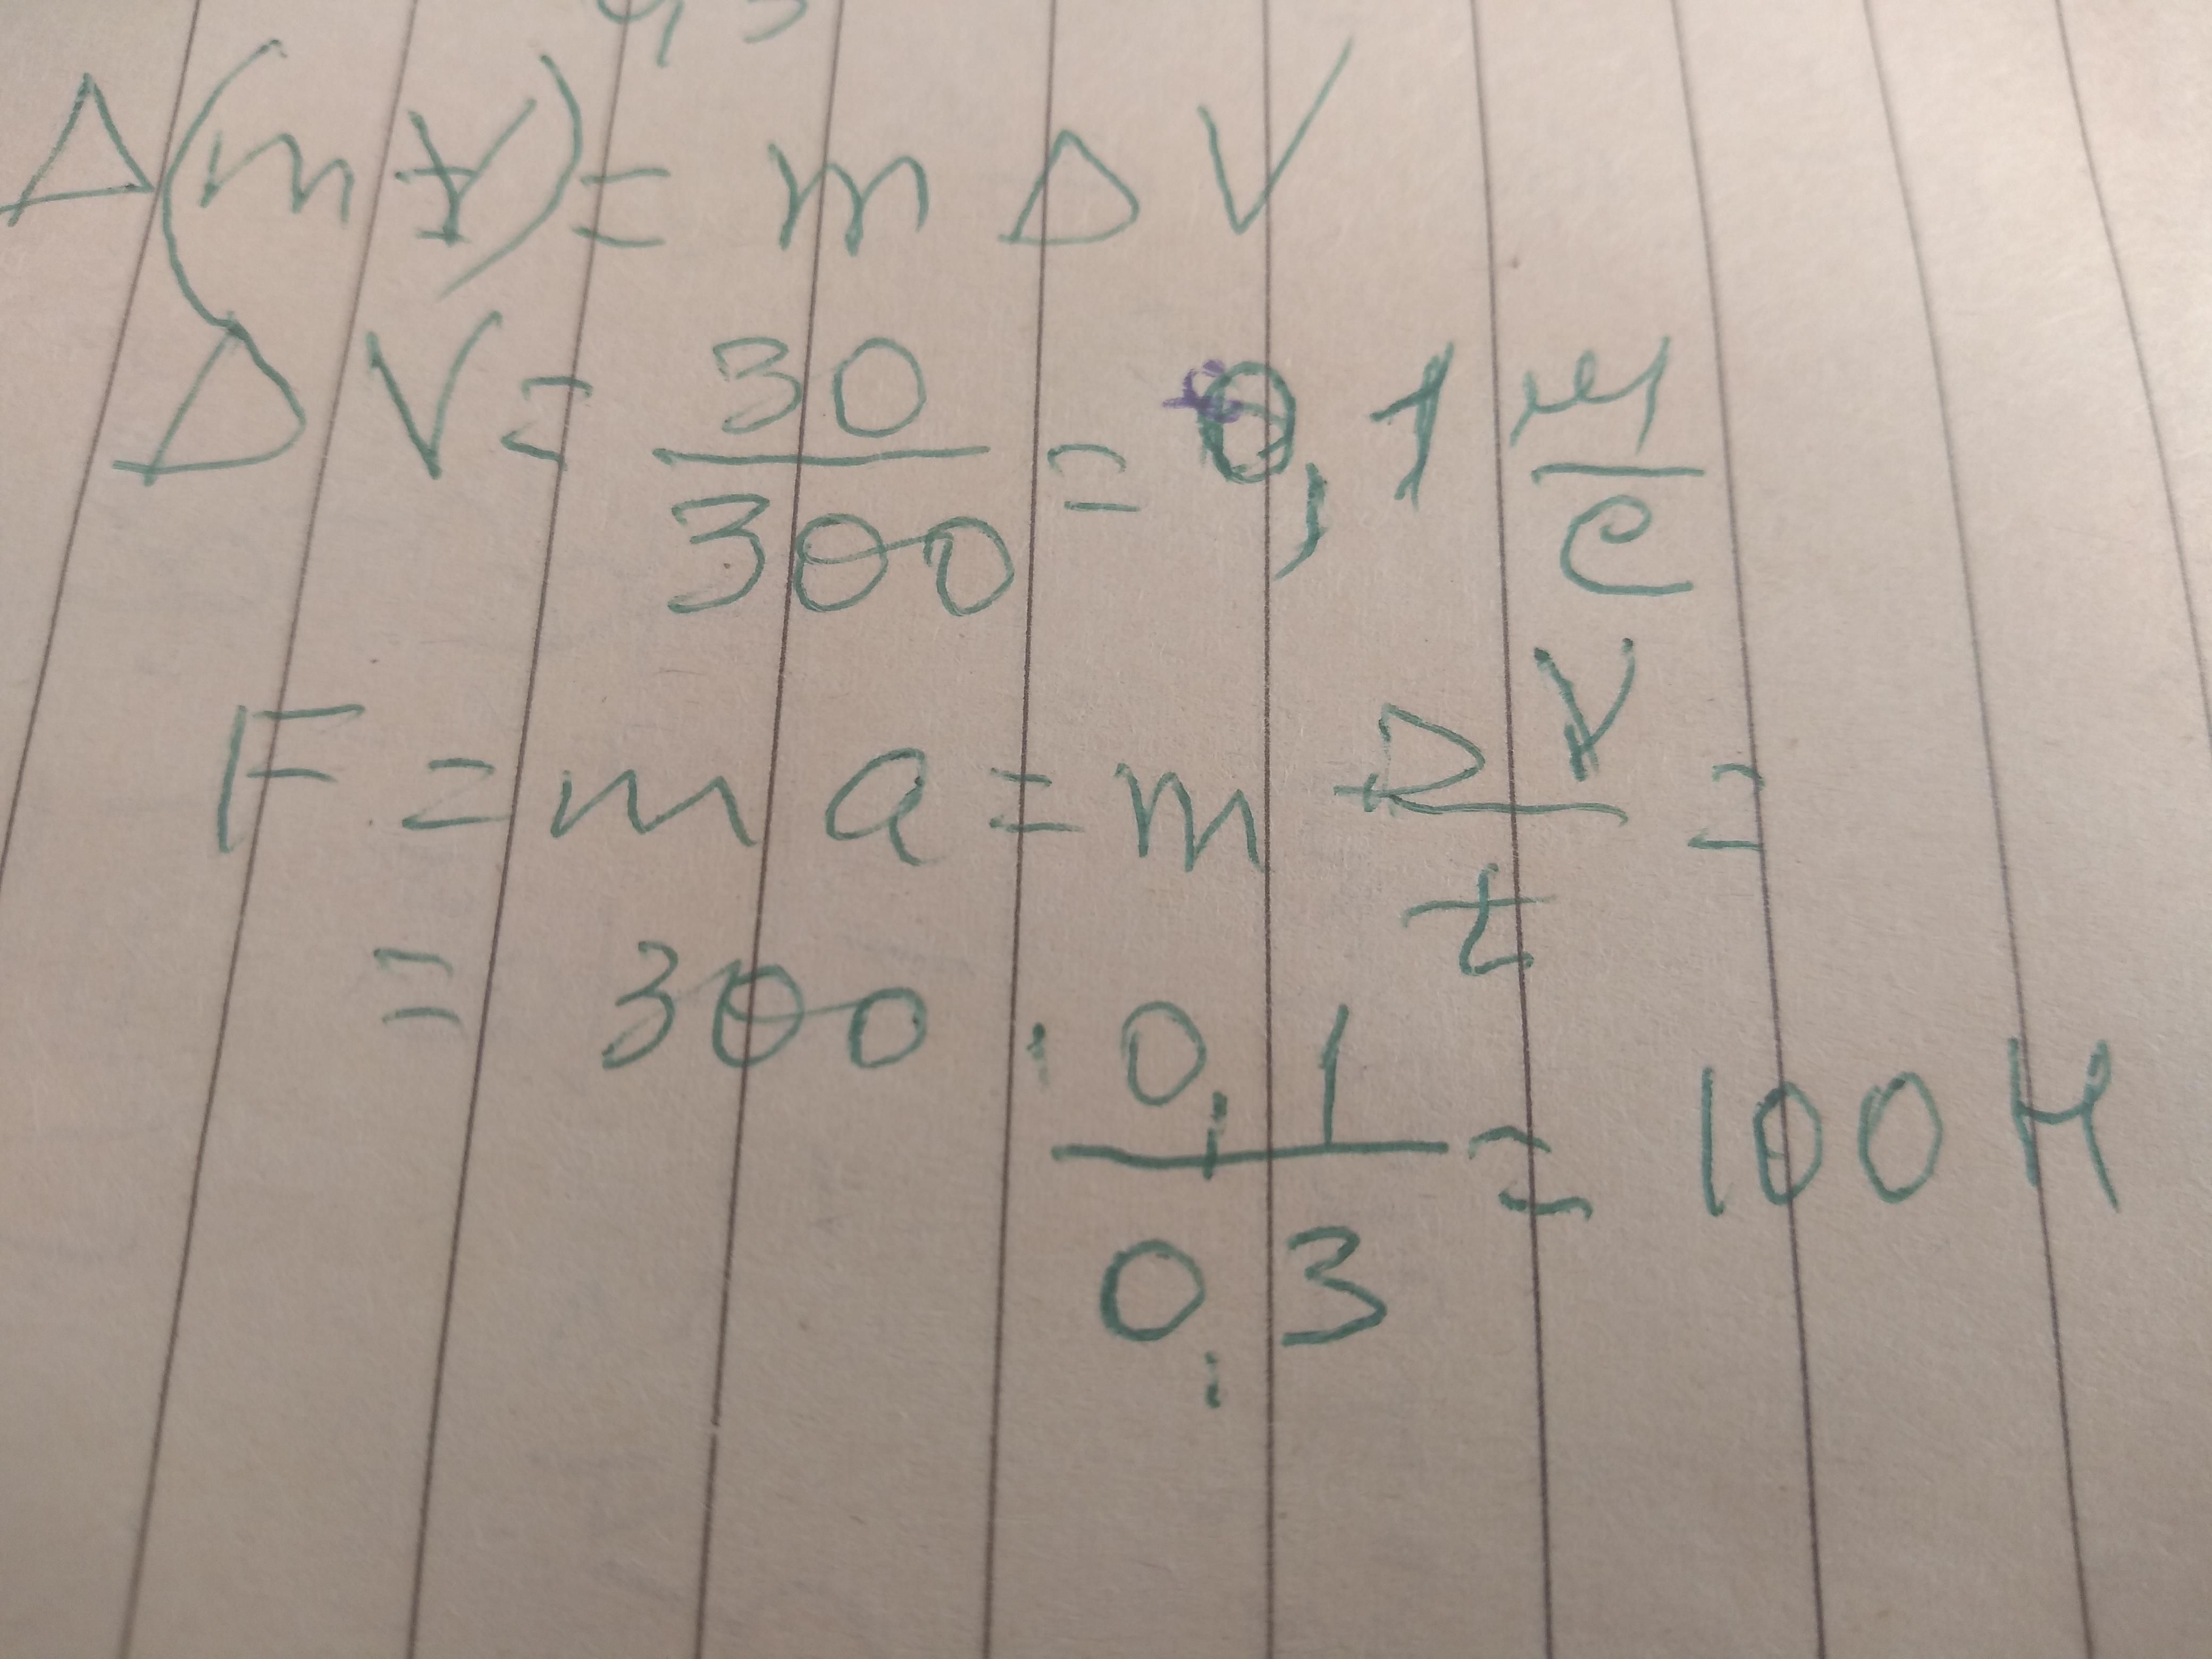 Δ(mV) = m Δ V
Δ V = 30/300 = 0,1 м/с
F = m a = m ΔV/t =
= 300 · 0,1/0,3 = 100 Н